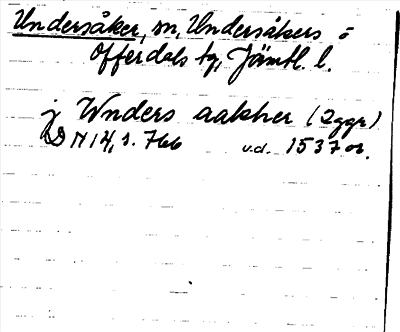 Undersåker, sn, Undersåkers o
Offerdals tg, Jämtl. l.
j Wnders aakher (2 ggr)
DN 14, s. 766 u.d. 1537 or.